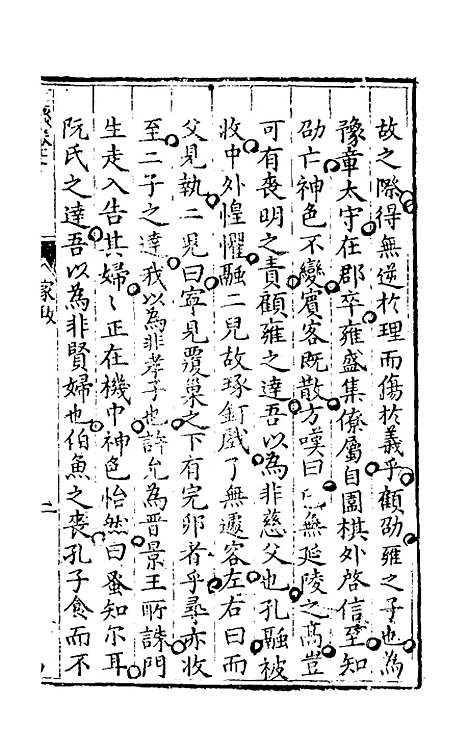 故之際得無逆於理而傷於義乎顧劭雍之子也為
豫章太守在郡卒雍盛集僚屬自圍棋外啓信至知
劭亡神色不變賓客既散方嘆曰已無延陵之髙豈
可有喪明之責顧雍之達吾以為非慈父也孔融被
收中外惶懼融二兒故琢釘戲了無遽容左右曰而
父見執二児曰寧見覆巢之下有完卵者乎尋亦收
至二子之達我以為非孝子也許允為晋景王所誅門
生走入告其婦〻正在機中神色怡然曰蚤知尔耳
阮氏之達吾以為非賢婦也伯魚之喪孔子食而不
家政
二